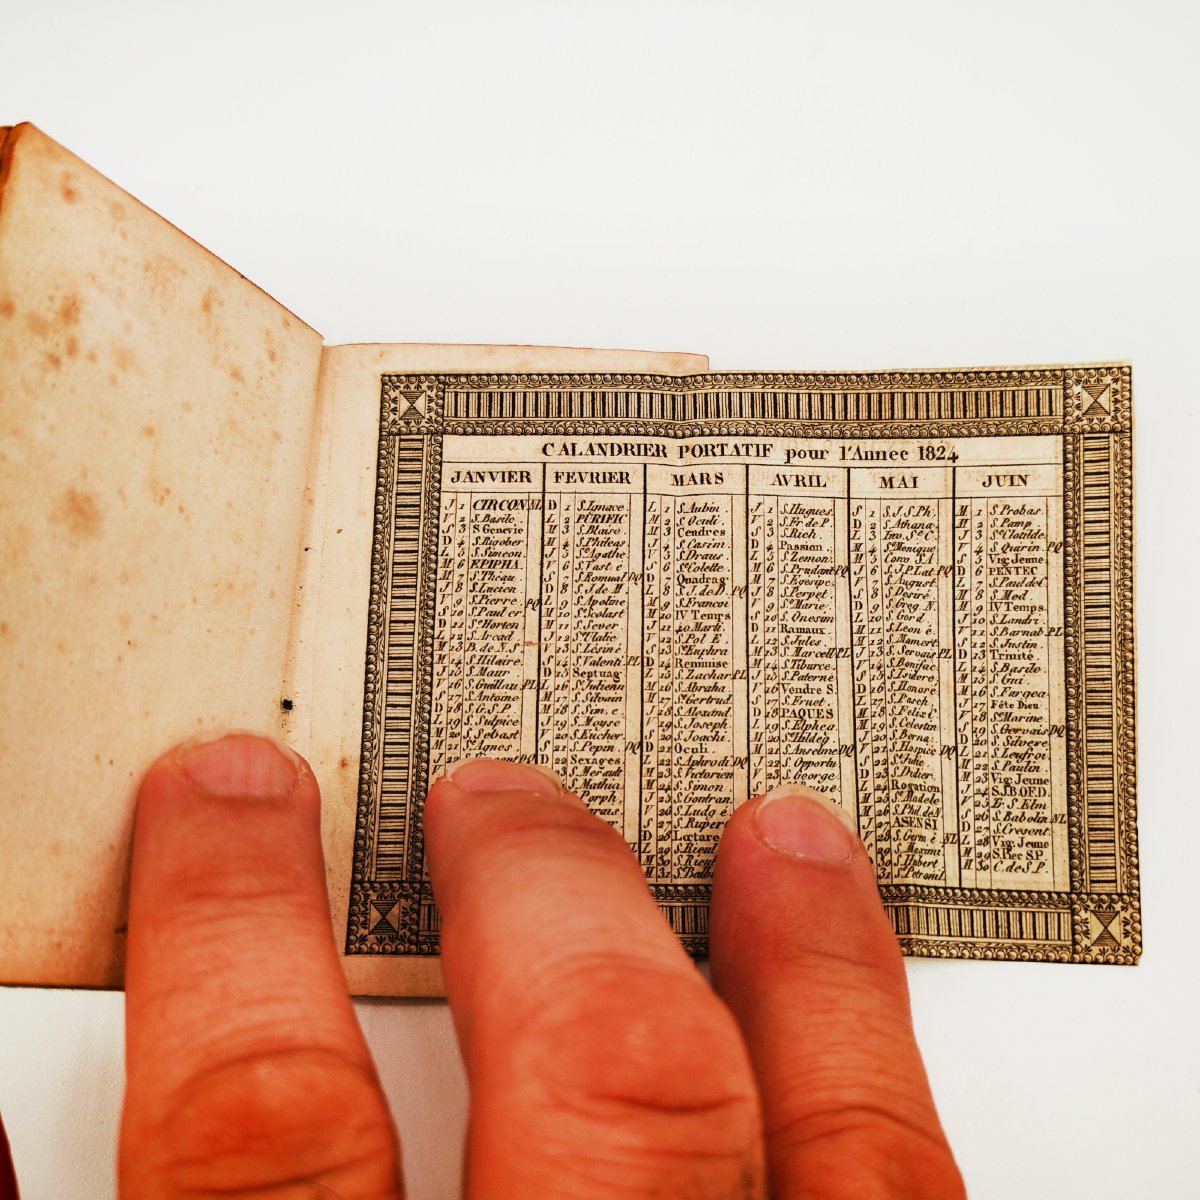 CALANDRIER PORTATIF pour l'Annee 1824
JANVIER
J 1 CIRCON NL
V 2 S.Basile.
S 3 S Genevie
D 4 S.Rigober
L 5 S.Simeon.
M 6 EPIPHA.
M 7 S.Théau.
J 8 S.Lucien
V 9 S.Pierre. PQ
S 10 S.Paul er
D 11 Ste Horten
L 12 S.Arcad
M 13 B. de N.S.
M 14 S.Hilaire.
J 15 S.Maur
V 16 S.Guillau. PL
S 17 S.Antoine
D 18 S.G.S.P.
L 19 S.Sulpice
M 20 S.Sebast
M 21 Ste Agnes.
J 22 S.Vincent DQ
FEVRIER
D 1 S.Ignace.
L 2 PURIFIC
M 3 S.Blaise
M 4 S.Phileas
J 5 Ste Agathe
V 6 S.Vast é
S 7 S.Romual DQ
D 8 S.J.de M.
L 9 S.Apoline
M 10 S.Scolast
M 11 S.Sever.
J 12 Ste Ulalie
V 13 S.Lésiné
S 14 S.Valenti. PL
D 15 Septuag
L 16 S.Julienn
M 17 S.Silvain
M 18 S.Sim.é.
J 19 S.Mouse
V 20 S.Eucher.
S 21 S.Pepin. DQ
D 22 Sexages
23 S.Merault
S.Mathia
S.Porph.
MARS
L 1 S.Aubin.
M 2 S.Oculi.
M 3 Cendres
J 4 S.Casim.
V 5 S.Draus
S 6 Ste Colette
D 7 Quadrag
L 8 S.J. de D. PQ
M 9 S.Francoi
M 10 IV Temps
J 11 40 Marti.
V 12 S.Pol E.
S 13 Ste Euphra
D 14 Reminise
L 15 S.Zachar PL
M 16 S.Abraha.
M 17 Ste Gertrud
J 18 S.Alexand.
V 19 S.Joseph.
S 20 S.Joachi
D 21 Oculi.
L 22 S.Aphrodi DQ
M 23 S.Victorien
M 24 S.Simon
J 25 S.Gontran.
V 26 S.Ludg é
S 27 S.Rupert
D 28 Lœtare
L 29 S.Rieul
M 30 S.Rieul
M 31 Ste Balbi
AVRIL
J 1 S.Hugues.
V 2 S.Fr de P.
S 3 S.Rich.
D 4 Passion.
L 5 S.Zemon
M 6 S.Prudant PQ
M 7 S.Egesipe.
J 8 S.Perpet
V 9 Ste Marie.
S 10 S.Onesim
D 11 Ramaux.
L 12 S.Jules.
M 13 S.Marcell PL
M 14 S.Tiburce.
J 15 S.Paterne
V 16 Vendre S.
S 17 S.Fruct.
D 18 PAQUES
L 19 S.Elphea.
M 20 S.Hildeg
M 21 S.Anselme DQ
J 22 S.Opportu
V 23 S.George
MAI
S 1 S.J.S.Ph.
D 2 S.Athana.
L 3 Inv. Ste C.
M 4 Ste Monique
M 5 Conv S.A
J 6 S.J.P.Lat PQ
V 7 S.August.
S 8 Désiré
D 9 S.Greg.N.
L 10 S.Gord.
M 11 S.Léon é.
M 12 S.Mamert.
J 13 S.Servais PL
V 14 S.Bonifac.
S 15 S.Isidore.
D 16 S.Honoré
L 17 S.Pasch.
M 18 S.Félix C.
M 19 S.Celestin
J 20 S.Berna.
V 21 S.Hospice DQ
S 22 Ste Julie.
D 23 S.Didier.
L 24 Rogation
M 25 Ste Madele
M 26 S.Phil.de N
J ASENSI
V 28 S.Germ.é. NL
S 29 S.Maximi.
D 30 S.Hubert
L 31 Ste Petronil.
JUIN
M 1 S.Probas.
M 2 S.Pamp.
J 3 Ste Clotilde.
V 4 S.Quirin PQ
S 5 Vig Jeune
D 6 PENTEC
L 7 S.Paul del.
M 8 S.Med.
M 9 IV Temps
J 10 S.Landri.
V 11 S.Barnab. PL
S 12 S.Justin.
D 13 Trinité.
L 14 S.Basile.
M 15 S.Gui.
M 16 S.Fargea.
J Fête Dieu
V 18 Ste Marine
S 19 S.Gervais DQ
D 20 S.Silvere
L 21 S.Leufroi
M 22 S.Paulin.
M 23 Vig. Jeune
J 24 S.J.B.OED.
V 25 Ir.S.Elm
S 26 S.Babolin NL
D 27 S.Cresent.
L 28 Vig: Jeune
M 29 S.Pier S.P.
M 30 C.de S.P.